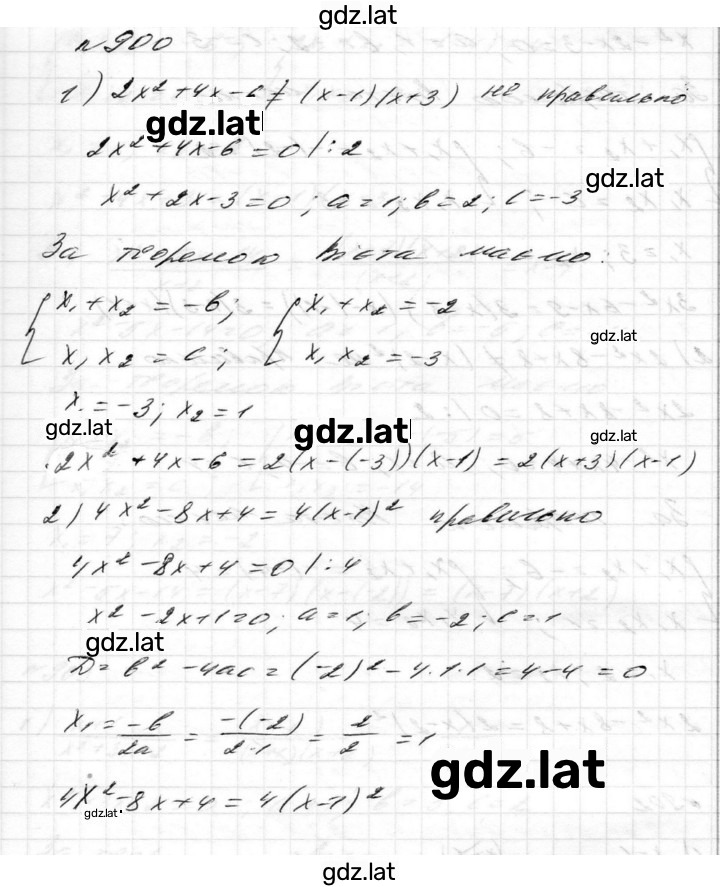 gdz.lat
№900
1) 2x² + 4x - 6 ≠ (x-1)(x+3) не правильно
gdz.lat
2x² + 4x - 6 = 0 /:2
gdz.lat
x² + 2x - 3 = 0; a = 1; b = 2; c = -3
За теоремою Вієта маємо:
{ x₁ + x₂ = -b; { x₁ + x₂ = -2
gdz.lat
x₁ x₂ = c; x₁ x₂ = -3
x₁ = -3; x₂ = 1
gdz.lat gdz.lat gdz.lat
2x² + 4x - 6 = 2(x-(-3))(x-1) = 2(x+3)(x-1)
2) 4x² - 8x + 4 = 4(x-1)² правильно
4x² - 8x + 4 = 0 /:4
x² - 2x + 1 = 0; a = 1; b = -2; c = 1
gdz.lat
D = b² - 4ac = (-2)² - 4·1·1 = 4 - 4 = 0
x₁ = -b/2a = -(-2)/2·1 = 2/2 = 1
gdz.lat
4x² - 8x + 4 = 4(x-1)²
gdz.lat
gdz.lat